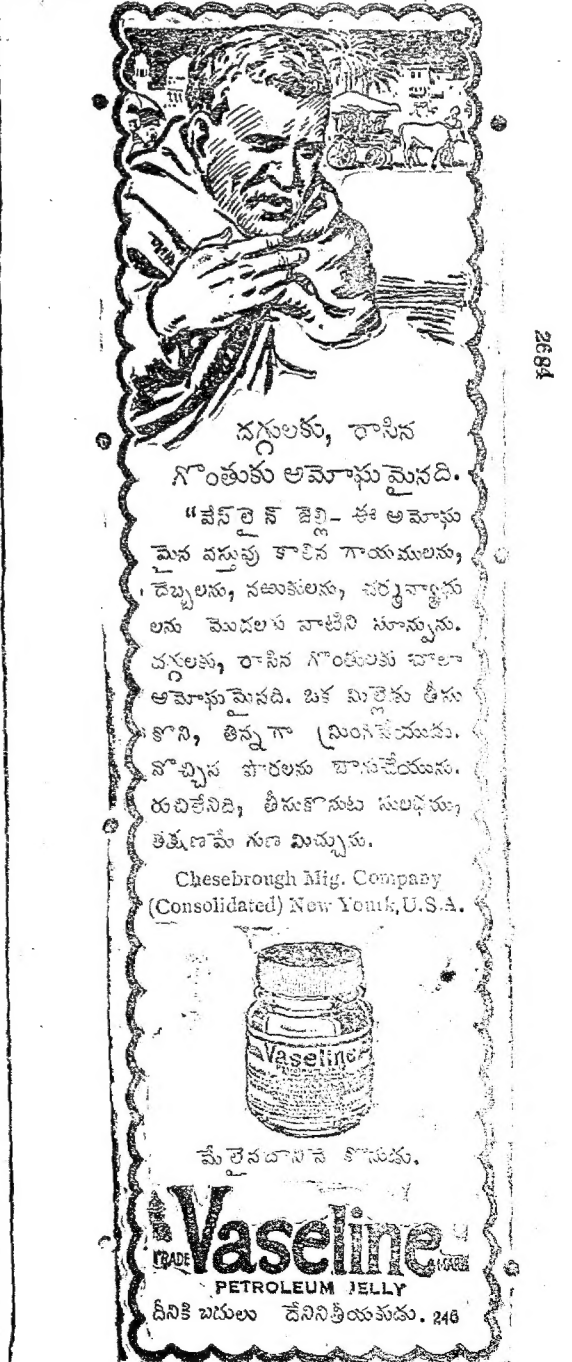 దగ్గులకు, రాసిన
గొంతుకు అమోఘమైనది.
"వేస్‌లైన్ జెల్లి– ఈ అమోఘ
మైన వస్తువు కాలిన గాయములను,
దెబ్బలను, నఱుకులను, చర్మవ్యాధు
లను మొదలగు వాటిని మాన్పును.
దగ్గులకు, రాసిన గొంతులకు చాలా
అమోఘమైనది. ఒక మిల్లెడు తీసు
కొని, తిన్నగా మ్రింగివేయుడు.
నొచ్చిన పొరలను బాగుచేయును.
రుచిలేనిది, తీసుకొనుట సులభము,
తత్క్షణమే గుణ మిచ్చును.
Chesebrough Mfg. Company
(Consolidated) New Yourk, U.S.A.
Vaseline
మేలైనదానినే కొనుడు.
TRADE Vaseline MARK
PETROLEUM JELLY
దీనికి బదులు దేనినితీయకుడు. 246
2684